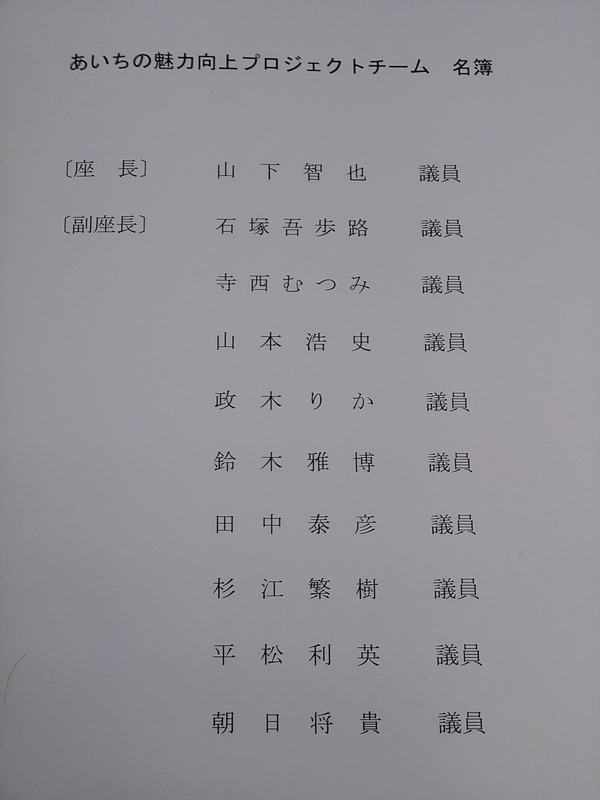 あいちの魅力向上プロジェクトチーム　名簿
〔座　長〕　山　下　智　也　議員
〔副座長〕　石　塚　吾　歩　路　議員
寺　西　む　つ　み　議員
山　本　浩　史　議員
政　木　り　か　議員
鈴　木　雅　博　議員
田　中　泰　彦　議員
杉　江　繁　樹　議員
平　松　利　英　議員
朝　日　将　貴　議員